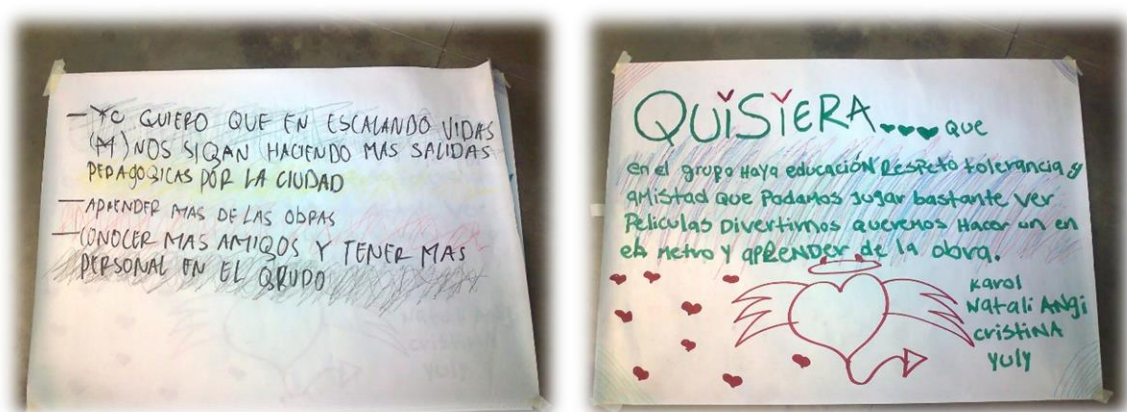 — YO QUIERO QUE EN ESCALANDO VIDAS
(M) NOS SIGAN HACIENDO MAS SALIDAS
PEDAGOGICAS POR LA CIUDAD
— APRENDER MAS DE LAS OBRAS
— CONOCER MAS AMIGOS Y TENER MAS
PERSONAL EN EL GRUPO
QUISIERA.... QUE
en el grupo Haya educación Respeto tolerancia y
amistad que Podamos Jugar bastante ver
Peliculas Divertirnos queremos Hacer un en
el metro y aPRENDER de la obra.
Karol
Natali ANgi
cristiNA
yuly